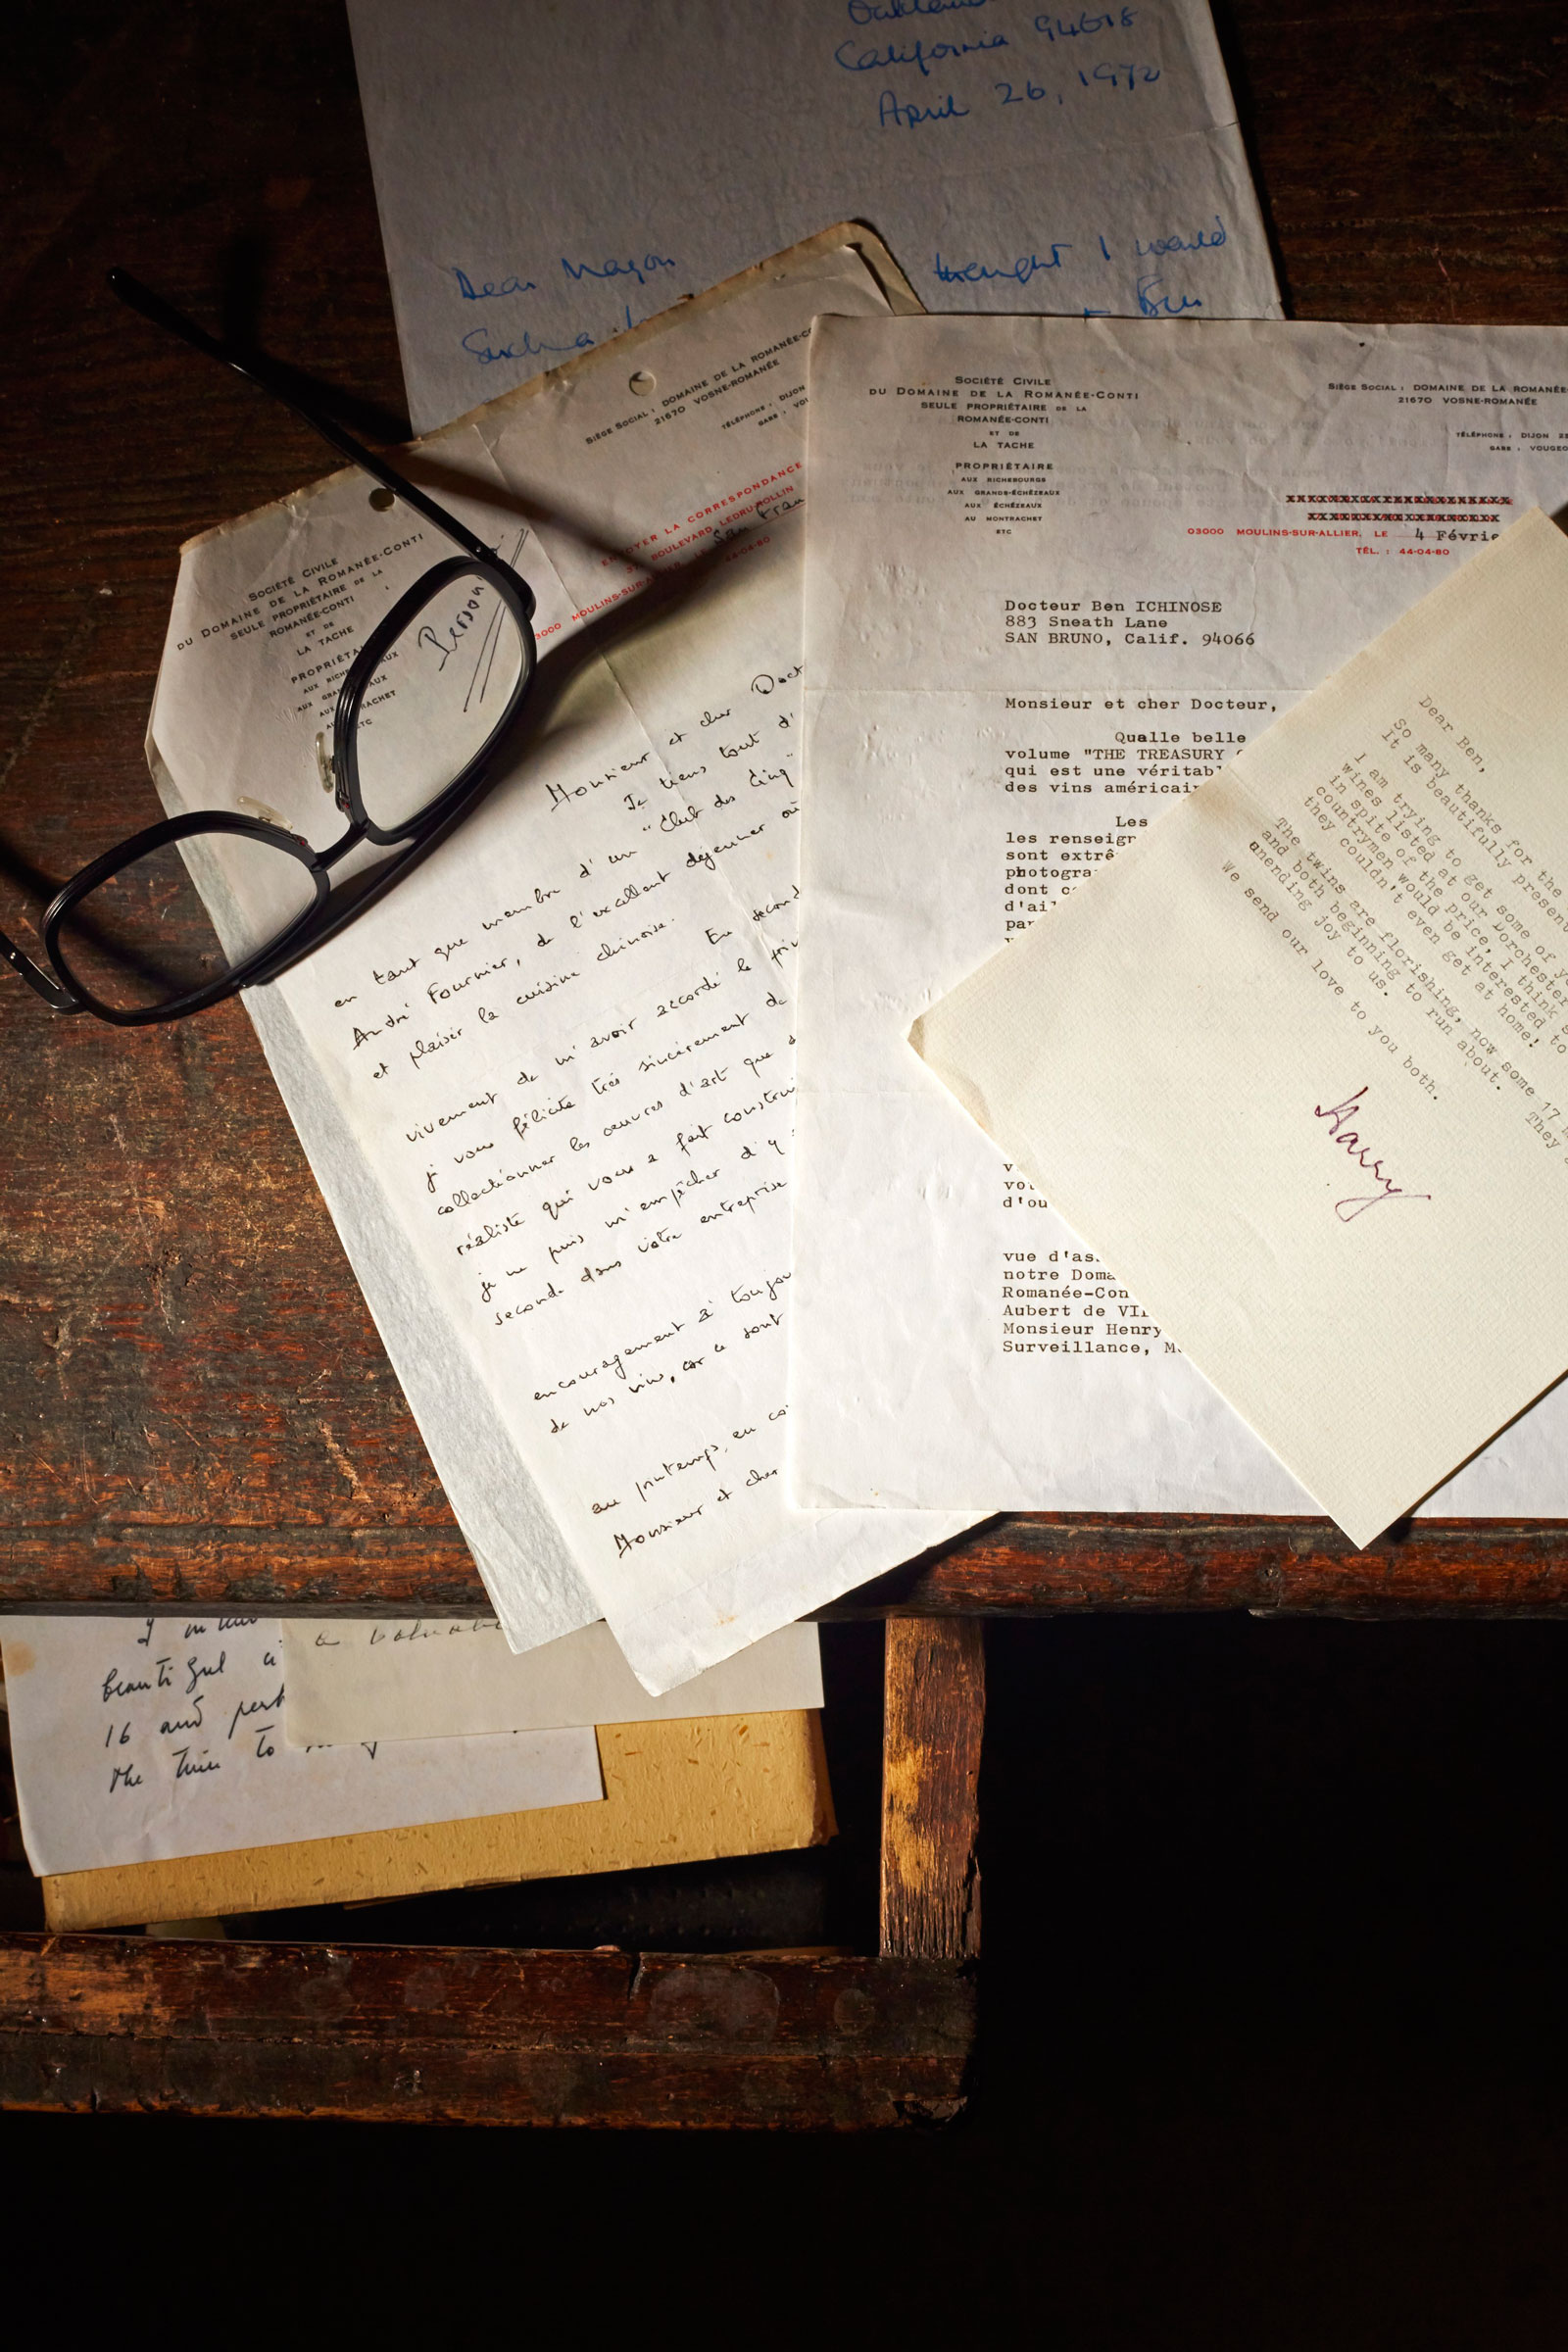 California 94618
April 26, 1972
Dear
thought I would
Ben
SOCIÉTÉ CIVILE
DU DOMAINE DE LA ROMANÉE-CONTI
SEULE PROPRIÉTAIRE DE LA
ROMANÉE-CONTI
ET DE
LA TACHE
SIÈGE SOCIAL : DOMAINE DE LA ROMANÉE-CO
21670 VOSNE-ROMANÉE
TÉLÉPHONE : DIJON
GARE : VOU
ENVOYER LA CORRESPONDANCE
BOULEVARD LEDRU-ROLLIN
MOULINS-SUR-
San Fran
44-04-80
Person
Monsieur et cher Doct
Je tiens tout d'
en tant que membre d'un "Club des Cinq"
André Fournier, de l'excellent déjeuner où
et plaisir la cuisine chinoise.
En second
vivement de m'avoir accordé le
je vous félicite très sincèrement de
collectionner les oeuvres d'art que
réaliste qui vous a fait construi
je ne puis m'empêcher d'y
seconde dans votre entreprise
encouragement à toujou
de nos vins, car ce sont
au printemps, en
Monsieur et cher
SOCIÉTÉ CIVILE
DU DOMAINE DE LA ROMANÉE-CONTI
SEULE PROPRIÉTAIRE DE LA
ROMANÉE-CONTI
ET DE
LA TACHE
PROPRIÉTAIRE
AUX RICHEBOURGS
AUX GRANDS-ÉCHÉZEAUX
AUX ÉCHÉZEAUX
AU MONTRACHET
ETC
SIÈGE SOCIAL : DOMAINE DE LA ROMANÉE
21670 VOSNE-ROMANÉE
TÉLÉPHONE : DIJON
GARE : VOUGEO
03000 MOULINS-SUR-ALLIER, LE 4 Févrie
TÉL. : 44-04-80
Docteur Ben ICHINOSE
883 Sneath Lane
SAN BRUNO, Calif. 94066
Monsieur et cher Docteur,
Qualle belle
volume "THE TREASURY
qui est une véritabl
des vins américain
Les
les renseign
sont extrê
photogra
dont c
d'ail
par
vo
d'ou
vue d'as
notre Doma
Romanée-Con
Aubert de VIL
Monsieur Henry
Surveillance, M
Dear Ben,
So many thanks for the
It is beautifully present
I am trying to get some of yo
wines listed at our Dorchester
in spite of the price, I think
countrymen would be interested to
they couldn't even get at home!
The twins are florishing, now some 17 m
and both beginning to run about. They
unending joy to us.
We send our love to you both.
Harry
beautiful
16 and perh
the time to